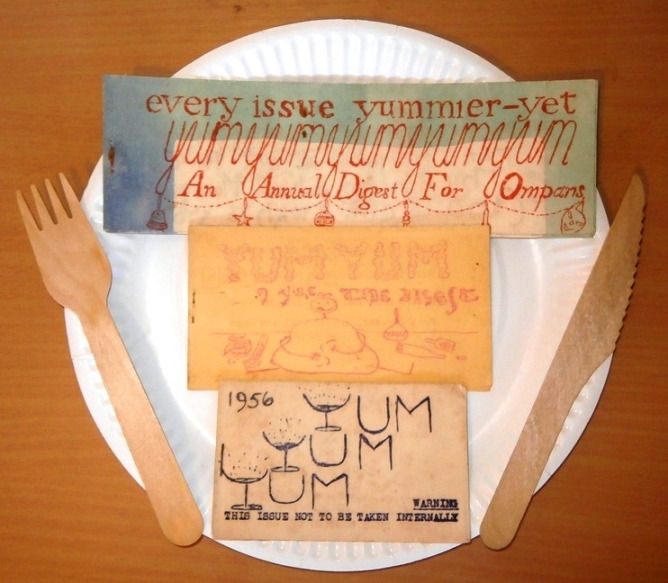 every issue yummier-yet
yumyumyumyumyumyum
An Annual Digest For Ompans
YUM YUM
1956
YUM
YUM
YUM
WARNING
THIS ISSUE NOT TO BE TAKEN INTERNALLY